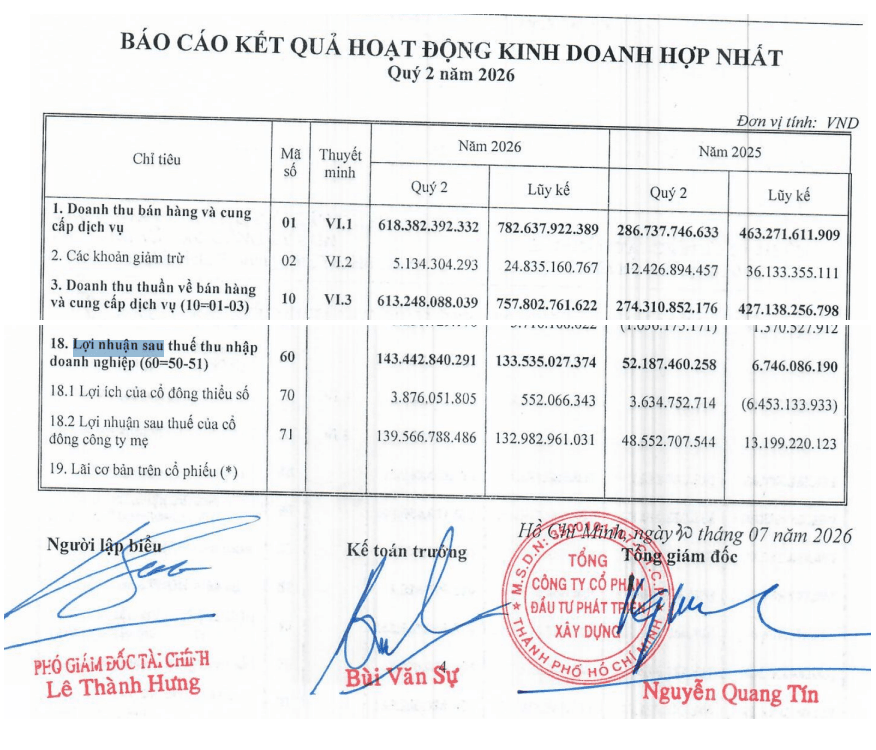 BÁO CÁO KẾT QUẢ HOẠT ĐỘNG KINH DOANH HỢP NHẤT
Quý 2 năm 2026
Đơn vị tính: VND
Chỉ tiêu Mã số Thuyết minh Năm 2026 Năm 2025
Quý 2 Lũy kế Quý 2 Lũy kế
1. Doanh thu bán hàng và cung
cấp dịch vụ 01 VI.1 618.382.392.332 782.637.922.389 286.737.746.633 463.271.611.909
2. Các khoản giảm trừ 02 VI.2 5.134.304.293 24.835.160.767 12.426.894.457 36.133.355.111
3. Doanh thu thuần về bán hàng
và cung cấp dịch vụ (10=01-03) 10 VI.3 613.248.088.039 757.802.761.622 274.310.852.176 427.138.256.798
18. Lợi nhuận sau thuế thu nhập
doanh nghiệp (60=50-51) 60 143.442.840.291 133.535.027.374 52.187.460.258 6.746.086.190
18.1 Lợi ích của cổ đông thiểu số 70 3.876.051.805 552.066.343 3.634.752.714 (6.453.133.933)
18.2 Lợi nhuận sau thuế của cổ
đông công ty mẹ 71 139.566.788.486 132.982.961.031 48.552.707.544 13.199.220.123
19. Lãi cơ bản trên cổ phiếu (*)
Hồ Chí Minh, ngày tháng 07 năm 2026
Người lập biểu Kế toán trưởng Tổng giám đốc
M.S.D.N:
TỔNG
CÔNG TY CỔ PHẦN
ĐẦU TƯ PHÁT TRIỂN
XÂY DỰNG
THÀNH PHỐ HỒ CHÍ MINH
PHÓ GIÁM ĐỐC TÀI CHÍNH
Lê Thành Hưng
4
Bùi Văn Sự
Nguyễn Quang Tín